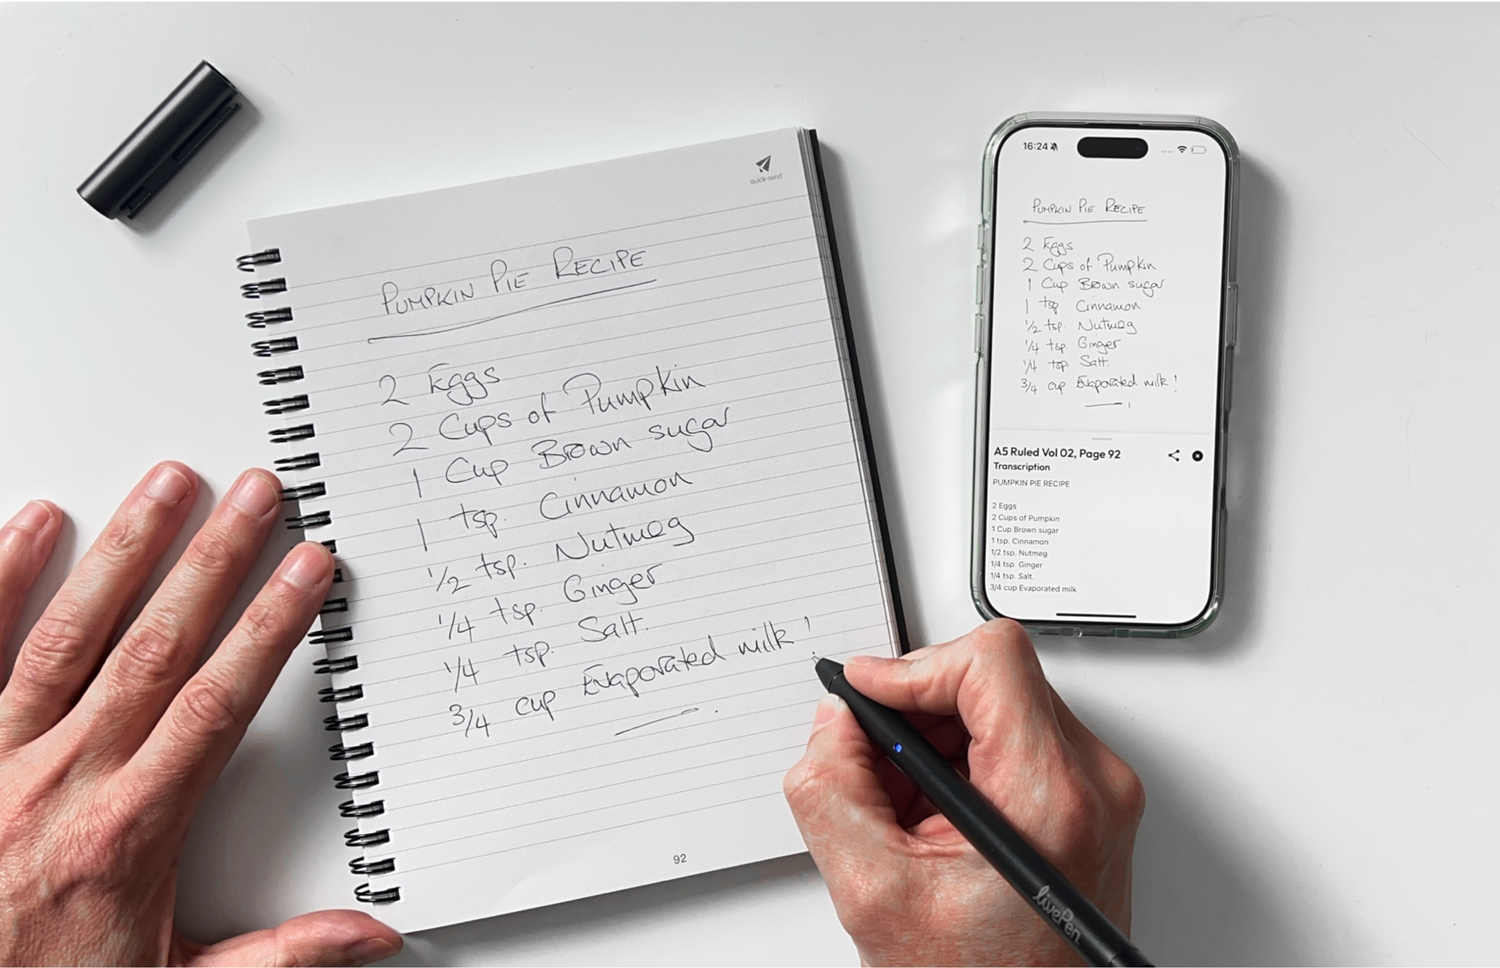 quick-send
PUMPKIN PIE RECIPE
2 Eggs
2 Cups of Pumpkin
1 Cup Brown sugar
1 tsp. Cinnamon
1/2 tsp. Nutmeg
1/4 tsp. Ginger
1/4 tsp. Salt.
3/4 cup Evaporated milk!
92
16:24
PUMPKIN PIE RECIPE
2 Eggs
2 Cups of Pumpkin
1 Cup Brown sugar
1 tsp Cinnamon
1/2 tsp. Nutmeg
1/4 tsp. Ginger
1/4 tsp Salt.
3/4 cup Evaporated milk!
A5 Ruled Vol 02, Page 92
Transcription
PUMPKIN PIE RECIPE
2 Eggs
2 Cups of Pumpkin
1 Cup Brown sugar
1 tsp. Cinnamon
1/2 tsp. Nutmeg
1/4 tsp. Ginger
1/4 tsp. Salt.
3/4 cup Evaporated milk
livePen